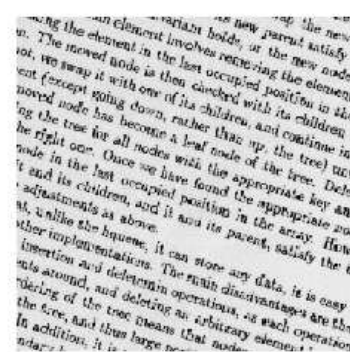 its new parent satisfy
variant holds, or the new node
min element involves removing the element
ing the element in the last occupied position in the
The moved node is then checked with its children
not, we swap it with one of its children, and continue in
ent (except going down, rather than up, the tree) un
moved node has become a leaf node of the tree. Dele
ing the tree for all nodes with the appropriate key an
he right one. Once we have found the appropriate no
node in the last occupied position in the array. How
it and its children, and it and its parent, satisfy the
adjustments as above.
at, unlike the hqueue, it can store any data, it is easy
ther implementations. The main disadvantages are the
insertion and deletemin operations, as each operation
nts around, and deleting an arbitrary element
dering of the tree means that node
the tree, and thus large
In addition, it is